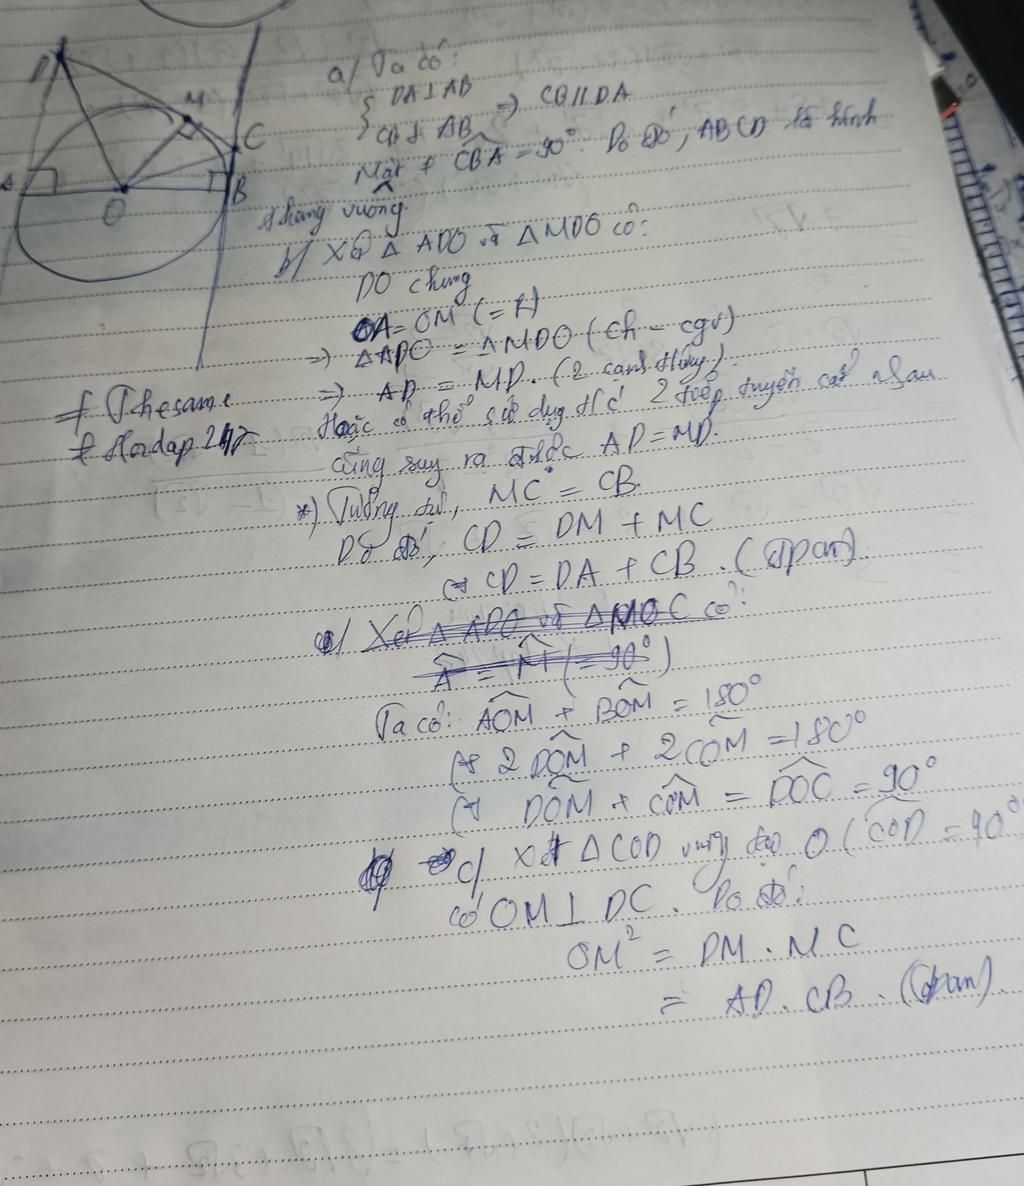 M
C
A
B
O
a/ Ta có:
{ DA⊥AB
CB⊥AB => CB//DA
Mặt ≠ CBA = 90°. Do đó, ABCD là hình
thang vuông.
b/ Xét Δ ADO và Δ MDO có:
DO chung
OA = OM (= R)
=> ΔADO = ΔMDO (ch - cgv)
=> AD = MD. (2 cạnh tương).
≠ Thesame
≠ Hoidap247
Hoặc có thể sử dụg t/c 2 tiếp tuyến cắt nhau
cũng suy ra được AD = MD.
*) Tương tự, MC = CB.
Do đó, CD = DM + MC
CD = DA + CB. (đpcm)
c/ Xét Δ ADO và Δ MOC có:
A = M (= 90°)
Ta có: AOM + BOM = 180°
2 DOM + 2 COM = 180°
DOM + COM = DOC = 90°
c/ Xét Δ COD vuông tại O (COD = 90°
có OM ⊥ DC. Do đó:
OM² = DM . MC
= AD . CB . (đpcm)